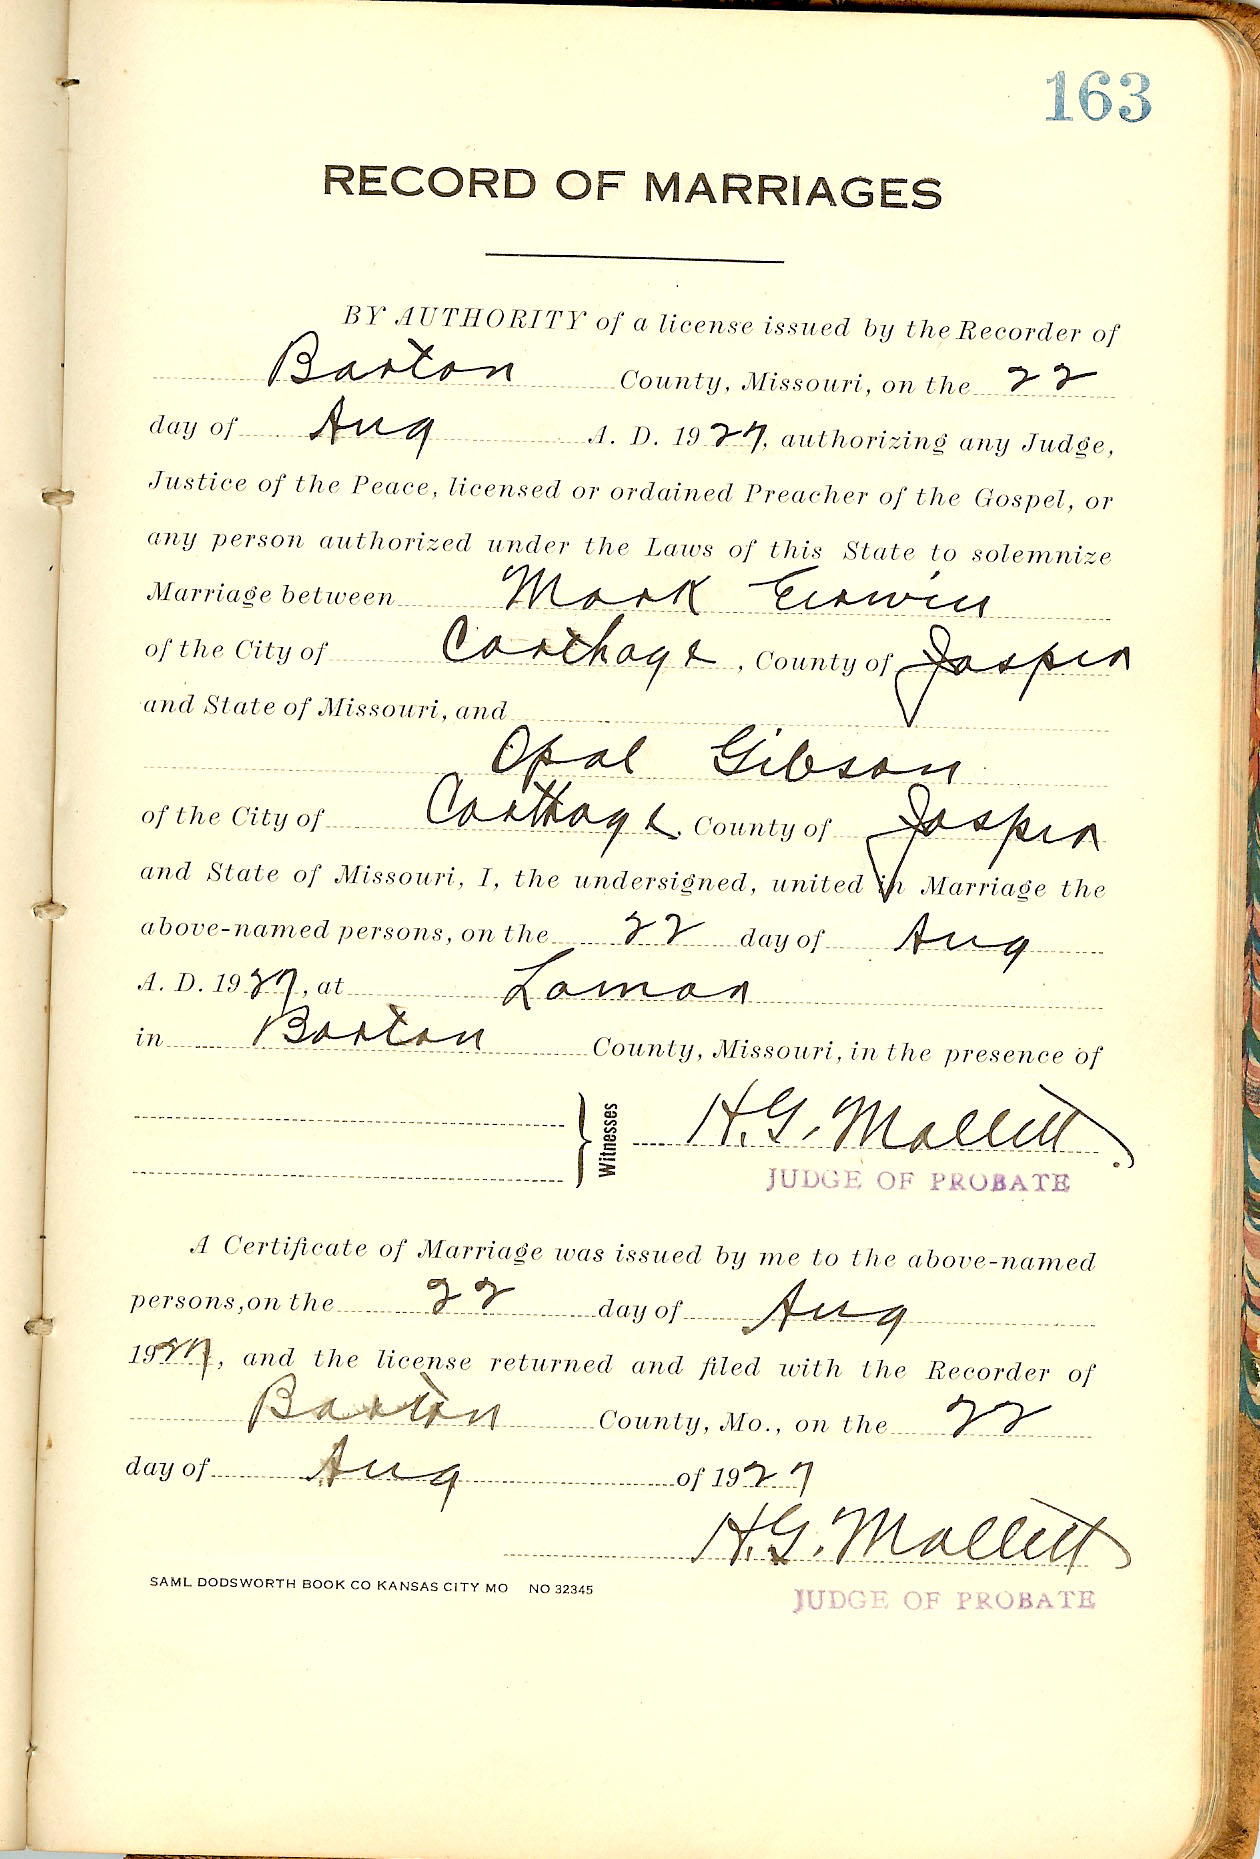 163
RECORD OF MARRIAGES
BY AUTHORITY of a license issued by the Recorder of
Barton County, Missouri, on the 22
day of Aug A. D. 1927, authorizing any Judge,
Justice of the Peace, licensed or ordained Preacher of the Gospel, or
any person authorized under the Laws of this State to solemnize
Marriage between Mark Erwin
of the City of Carthage, County of Jasper
and State of Missouri, and
Opal Gibson
of the City of Carthage, County of Jasper
and State of Missouri, I, the undersigned, united in Marriage the
above-named persons, on the 22 day of Aug
A. D. 1927, at Lamar
in Barton County, Missouri, in the presence of
Witnesses H. G. Mallett
JUDGE OF PROBATE
A Certificate of Marriage was issued by me to the above-named
persons, on the 22 day of Aug
1927, and the license returned and filed with the Recorder of
Barton County, Mo., on the 22
day of Aug of 1927
H. G. Mallett
SAML DODSWORTH BOOK CO KANSAS CITY MO NO 32345
JUDGE OF PROBATE